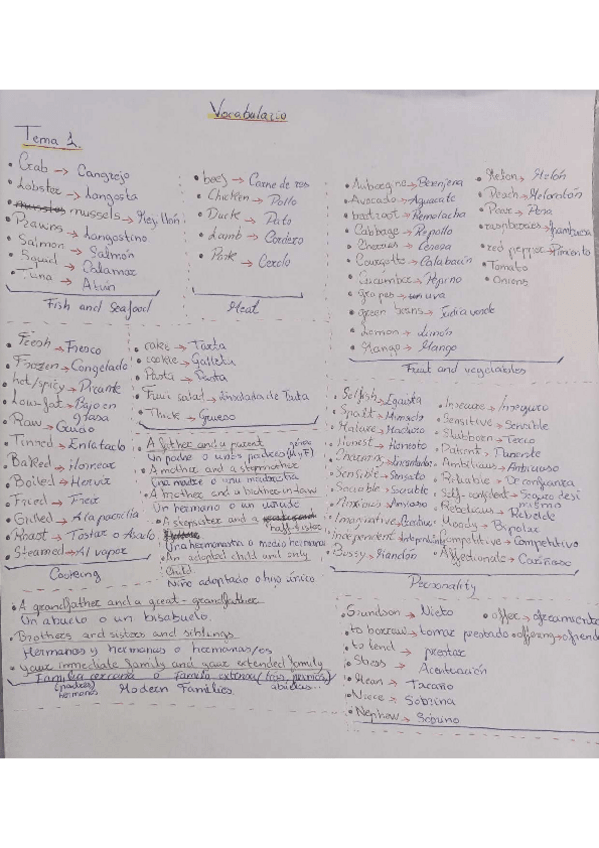 Vocabulario
Tema 1.
• Crab → Cangrejo
• Lobster → Langosta
• mussels → Mejillón
• Prawns → Langostino
• Salmon → Salmón
• Squad → Calamar
• Tuna → Atún
Fish and Seafood
• beef → Carne de res
• Chicken → Pollo
• Duck → Pato
• Lamb → Cordero
• Pork → Cerdo
Meat
• Auborgne → Berenjena
• Avocado → Aguacate
• beetroot → Remolacha
• Cabbage → Repollo
• Cherries → Cereza
• Courgette → Calabacín
• Cucumber → Pepino
• grapes → uva
• green beans → Judía verde
• Lemon → Limón
• Mango → Mango
• Melon → Melón
• Peach → Melocotón
• Pear → Pera
• raspberries → frambuesa
• red pepper → Pimiento
• Tomato
• Onions
Fruit and vegetables
• Fresh → Fresco
• Frozen → Congelado
• hot/spicy → Picante
• Low-fat → Bajo en
grasa
• Raw → Crudo
• Tinned → Enlatado
• Baked → Hornear
• Boiled → Hervir
• Fried → Freír
• Grilled → A la parrilla
• Roast → Tostar o Asado
• Steamed → Al vapor
Cooking
• cake → Tarta
• cookie → Galleta
• Pasta → Pasta
• Fruit salad → Ensalada de fruta
• Thick → Grueso
• A father and a parent
Un padre o unos padres (M y F)
• A mother and a stepmother
Una madre o una madrastra
• A brother and a brother in law
Un hermano o un cuñado
• A stepsister and a half sister
Una hermanastra o medio hermana
• An adopted child and only
child
Niño adoptado o hijo único
• A grandfather and a great-grandfather
Un abuelo o un bisabuelo
• Brothers and sisters and siblings
Hermanos y hermanas o hermanos/as
• your immediate family and your extended family
Familia cercana o familia extensa (tíos, primos)
(padres)
hermanos
abuelos...
Modern Families
• Selfish → Egoísta
• Spoilt → Mimado
• Mature → Maduro
• Honest → Honesto
• Charming → Encantador
• Sensible → Sensato
• Sociable → Sociable
• Anxious → Ansioso
• Imaginative →
independent → Independiente
• Bossy → Mandón
• Insecure → Inseguro
• Sensitive → Sensible
• Stubborn → Terco
• Patient → Paciente
• Ambitious → Ambicioso
• Reliable → De confianza
• Self-confident → Seguro de si
mismo
• Rebelious → Rebelde
• Moody → Bipolar
• Competitive → Competitivo
• Affectionate → Cariñoso
Personality
• Grandson → Nieto
• to borrow → tomar prestado
• to lend → prestar
• Stress → Acentuación
• Mean → Tacaño
• Niece → Sobrina
• Nephew → Sobrino
• offer → ofrecimiento
• offering → ofrenda